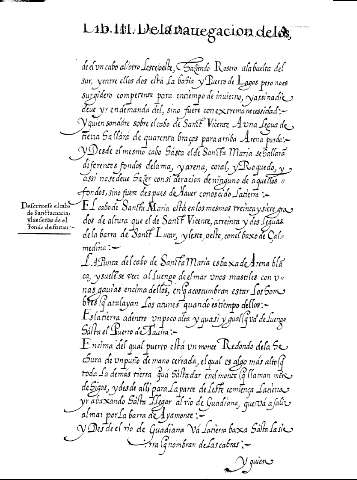 Lib. III. De la nauegacion de los
de el vn cabo al otro Lesteoeste, haziendo Rostro a la buelta del
sur, y entre ellos dos esta La bahia y Puerto de Lagos pero no es
surgidero competente para en tiempo de inuierno, y assi nadie
deue yr en demanda del, sino fuere con extrema necessidad.
Y quien sondare sobre el cabo de Sanct Vicente A vna legua de
tierra hallara de quarenta braças para arriba Arena parda:
Y Desde el mesmo cabo hasta el de Sancta Maria se hallara
diferentes fondos de lama, y arena, coral, y Roquedo, y
assi no se deue hazer consideracion de ninguno de aquellos
fondos, sino fuere despues de hauer conoscido La tierra:
El cabo de Sancta Maria esta en los mesmos treinta y siete gra
dos de altura que el de Sanct Vicente, a treinta y dos leguas
de la barra de Sanct Lucar, y leste, oeste, con el baxo de Cal
medina:
Descriuese el cabo
de Sancta maria
y las señas de el
Por sus distancias.
LA Punta del cabo de Sancta Maria es baxa de Arena blā
ca, y suelese ver al luengo de el mar vnos masteles con v
nas gauias encima dellos, en que acostumbran estar los hom
bres que atalayan Los atunes quando es tiempo dellos:
Es la tierra adentro vn poco alta y quasi ygual que va de luengo
hasta el Puerto de Tauira:
Encima del qual puerto está vn monte Redondo de la he
chura de vn puño de mano cerrada, el qual es algo mas alto que
toda La demas tierra que hasta dar en el monte que llaman mon
te de higos, y desde alli para la parte de leste comiença La tierra
yr abaxando hasta llegar al rio de Guadiana, que va a salir
al mar por la barra de Ayamonte:
Y Desde el rio de Guadiana Va La tierra baxa hasta la sie
rra que nombran de las cabras:
Y quien